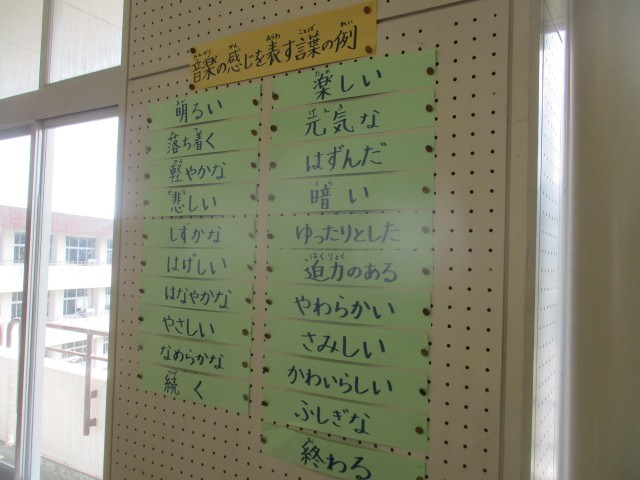 音楽の感じを表す言葉の例
明るい
落ち着く
軽やかな
悲しい
しずかな
はげしい
はなやかな
やさしい
なめらかな
続く
楽しい
元気な
はずんだ
暗い
ゆったりとした
迫力のある
やわらかい
さみしい
かわいらしい
ふしぎな
終わる